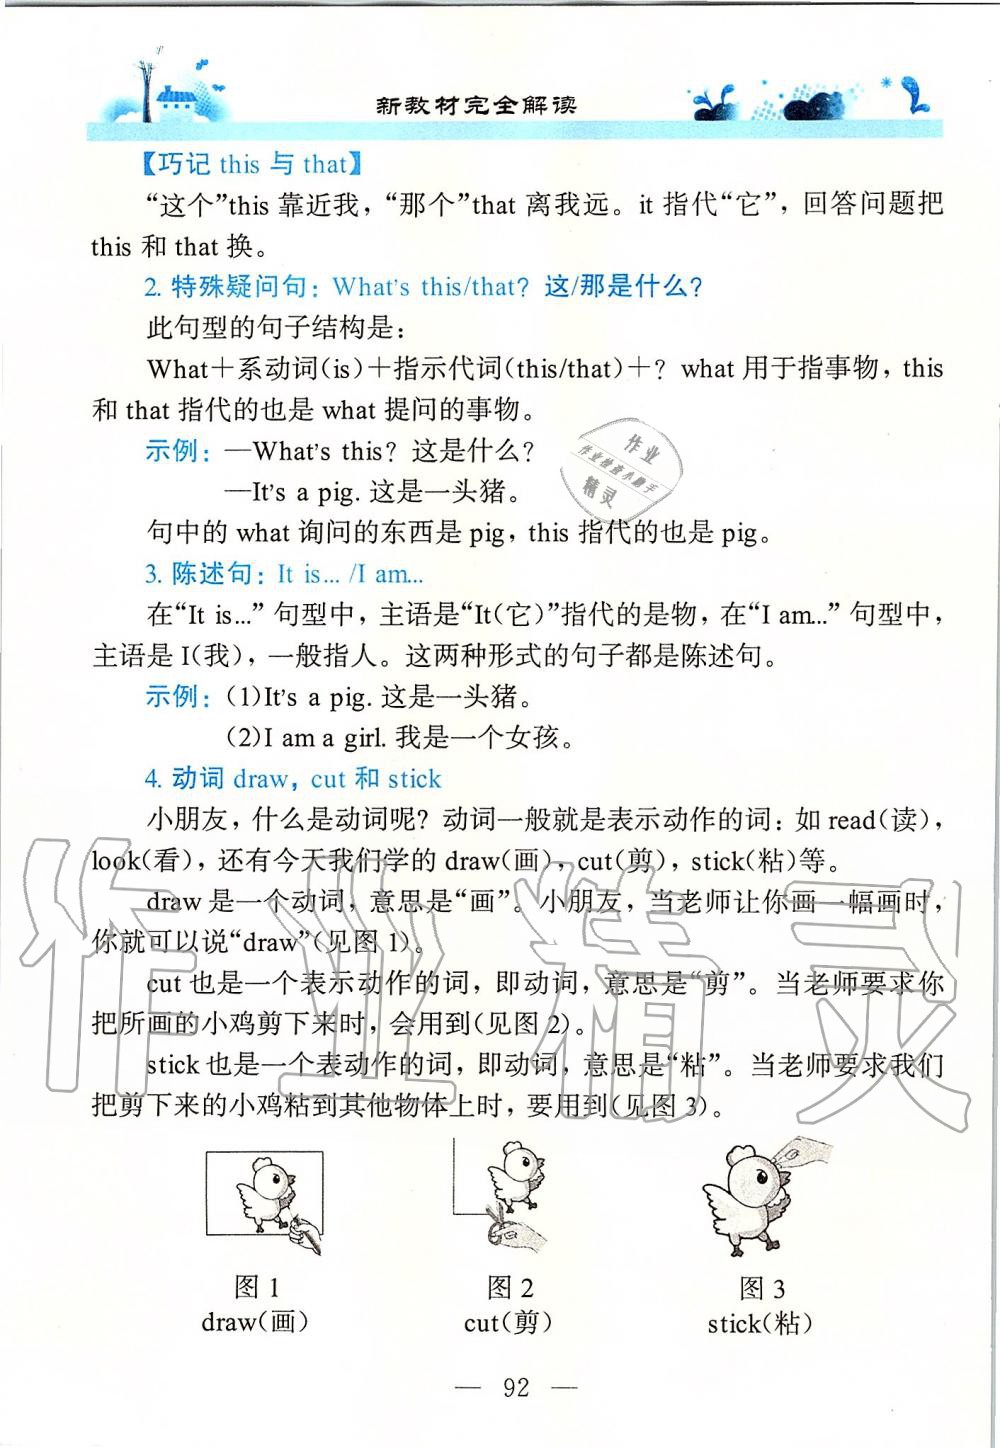 新教材完全解读
【巧记 this 与 that】
“这个”this 靠近我，“那个”that 离我远。it 指代“它”，回答问题把
this 和 that 换。
2. 特殊疑问句：What's this/that？这/那是什么？
此句型的句子结构是：
What＋系动词(is)＋指示代词(this/that)＋？what 用于指事物，this
和 that 指代的也是 what 提问的事物。
示例：—What's this？这是什么？
—It's a pig. 这是一头猪。
句中的 what 询问的东西是 pig，this 指代的也是 pig。
3. 陈述句：It is... /I am...
在“It is...” 句型中，主语是“It(它)”指代的是物，在“I am...” 句型中，
主语是 I(我)，一般指人。这两种形式的句子都是陈述句。
示例：(1)It's a pig. 这是一头猪。
(2)I am a girl. 我是一个女孩。
4. 动词 draw，cut 和 stick
小朋友，什么是动词呢？动词一般就是表示动作的词：如 read(读)，
look(看)，还有今天我们学的 draw(画)，cut(剪)，stick(粘)等。
draw 是一个动词，意思是“画”。小朋友，当老师让你画一幅画时，
你就可以说“draw”(见图 1)。
cut 也是一个表示动作的词，即动词，意思是“剪”。当老师要求你
把所画的小鸡剪下来时，会用到(见图 2)。
stick 也是一个表动作的词，即动词，意思是“粘”。当老师要求我们
把剪下来的小鸡粘到其他物体上时，要用到(见图 3)。
图 1 图 2 图 3
draw(画) cut(剪) stick(粘)
— 92 —
作业
作业检查小助手
精灵
作业精灵